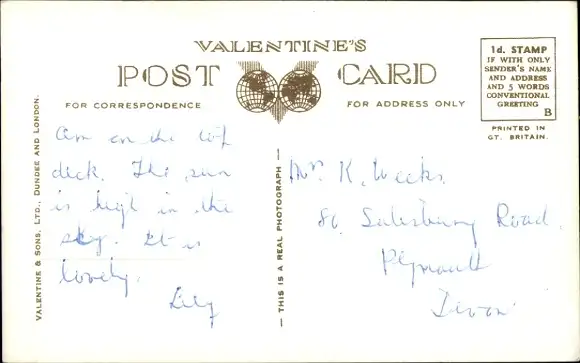 VALENTINE'S
POST CARD
FOR CORRESPONDENCE
FOR ADDRESS ONLY
1d. STAMP
IF WITH ONLY
SENDER'S NAME
AND ADDRESS
AND 5 WORDS
CONVENTIONAL
GREETING
B
PRINTED IN
GT. BRITAIN.
VALENTINE & SONS, LTD., DUNDEE AND LONDON.
Am on the top
deck. The sun
is high in the
sky. It is
lovely.
Lily
— THIS IS A REAL PHOTOGRAPH —
Mrs K. Weeks.
80 Salisbury Road.
Plymouth
Devon